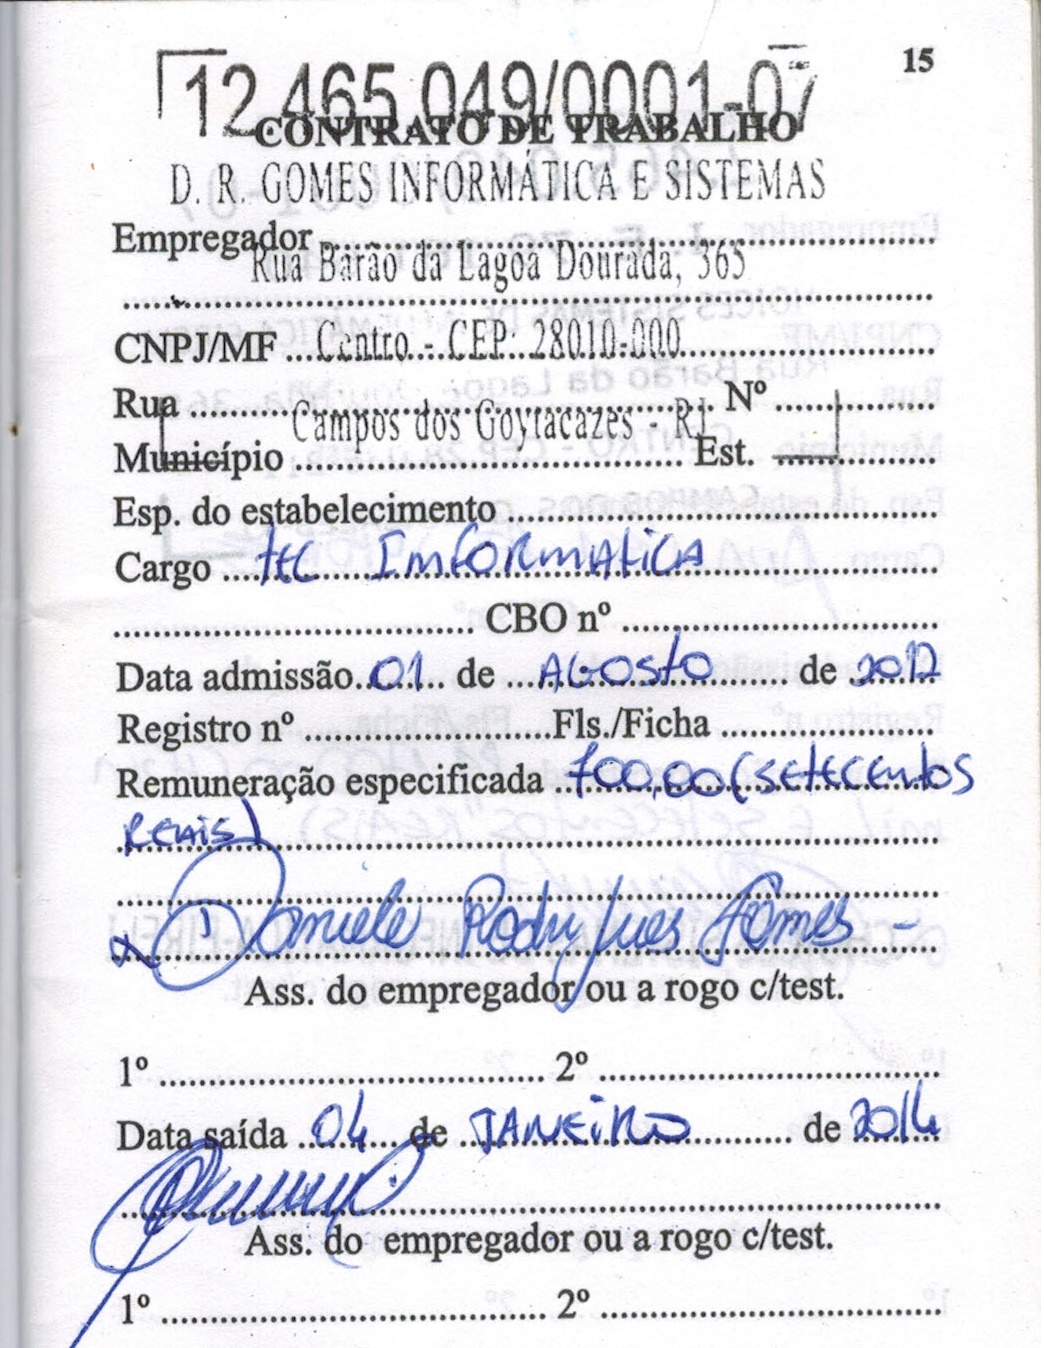 15
12.465.049/0001-07
CONTRATO DE TRABALHO
D. R. GOMES INFORMÁTICA E SISTEMAS
Empregador
Rua Barão da Lagoa Dourada, 365
CNPJ/MF ... Centro - CEP: 28010-000
Rua ... Nº
Campos dos Goytacazes - RJ
Município ... Est.
Esp. do estabelecimento
Cargo ... tec Imformatica
CBO nº
Data admissão 01 de AGOSTO de 2012
Registro nº ... Fls./Ficha
Remuneração especificada 700,00 (setecentos
reais)
Daniele Rodrigues Gomes -
Ass. do empregador ou a rogo c/test.
1º ... 2º
Data saída 04 de JANEIRO de 2014
Ass. do empregador ou a rogo c/test.
1º ... 2º